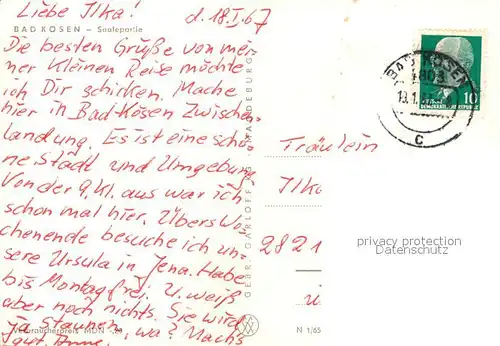 Liebe Ilka! d. 18.I.67
BAD KÖSEN – Saalepartie
Die besten Grüße von mei-
ner kleinen Reise möchte
ich Dir schicken. Mache
hier in Bad-Kösen Zwischen-
landung. Es ist eine schö-
ne Stadt und Umgebung.
Von der 9. Kl. aus war ich
schon mal hier. Übers Wo-
chenende besuche ich un-
sere Ursula in Jena. Habe
bis Montag frei. U. weiß
aber noch nichts. Sie wird
ja staunen, wa? Machs
gut.
Verbraucherpreis MDN
GEBR. GARLOFF KG, MAGDEBURG
N 1/65
BAD KÖSEN
10
DEMOKRATISCHE REPUBLIK
c
Fräulein
Ilka
2821
privacy protection
Datenschutz